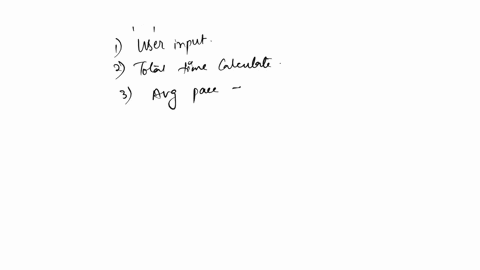 1) User input.
2) Total time Calculate.
3) Avg pace -